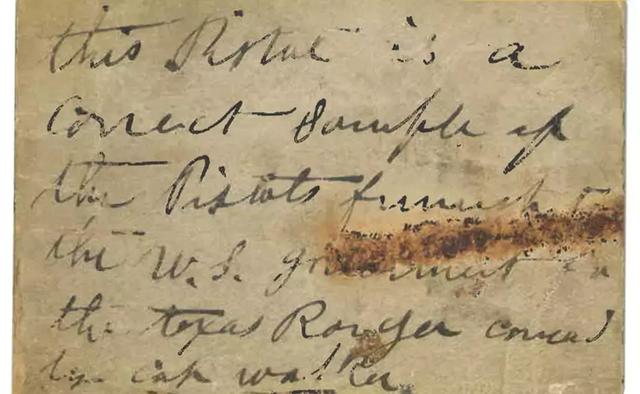 this Pistol is a
Correct Sample of
the Pistols furnish
the U.S. goverment
the texas Ranger
by cap walker